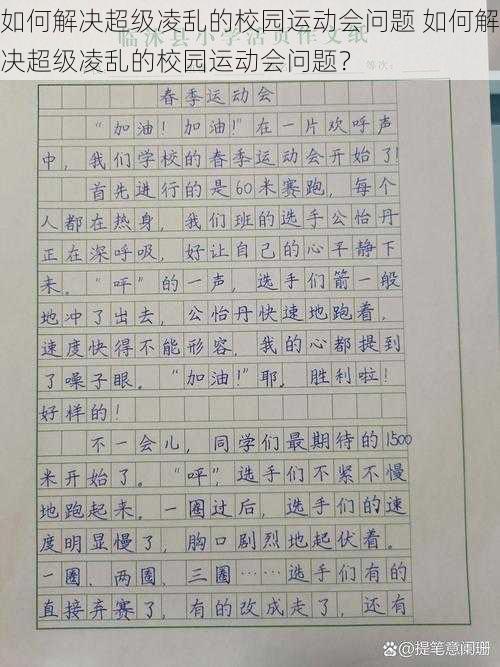 如何解决超级凌乱的校园运动会问题 如何解
决超级凌乱的校园运动会问题？
临沭县小学活页作文纸
等次：
春季运动会
“加油！加油！”在一片欢呼声
中，我们学校的春季运动会开始了！
首先进行的是60米赛跑，每个
人都在热身，我们班的选手公怡丹
正在深呼吸，好让自己的心平静下
来。“呯”的一声，选手们箭一般
地冲了出去，公怡丹快速地跑着，
速度快得不能形容，我的心都提到
了嗓子眼。“加油！”耶，胜利啦！
好样的！
不一会儿，同学们最期待的1500
米开始了。“呯”，选手们不紧不慢
地跑起来。一圈过后，选手们的速
度明显慢了，胸口剧烈地起伏着。
一圈、两圈，三圈……选手们有的
直接弃赛了，有的改成走了，还有
@提笔意阑珊